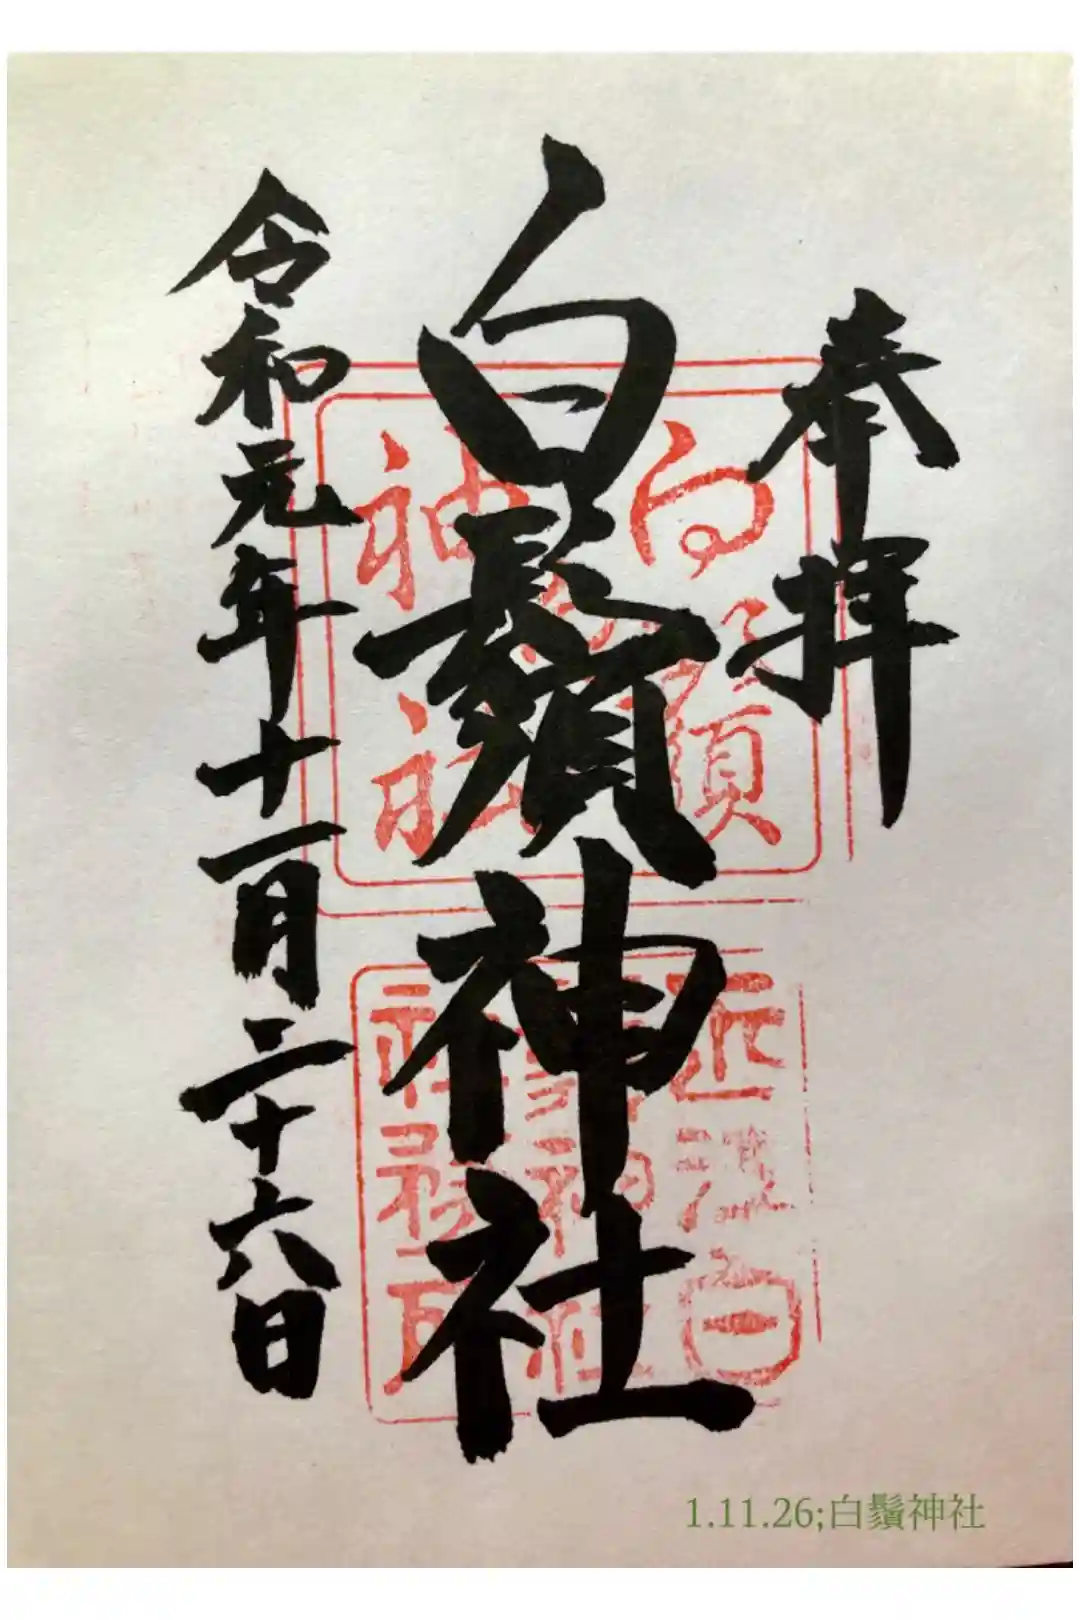 奉拝
白鬚神社
令和元年十一月二十六日
白須
神社
1.11.26;白鬚神社